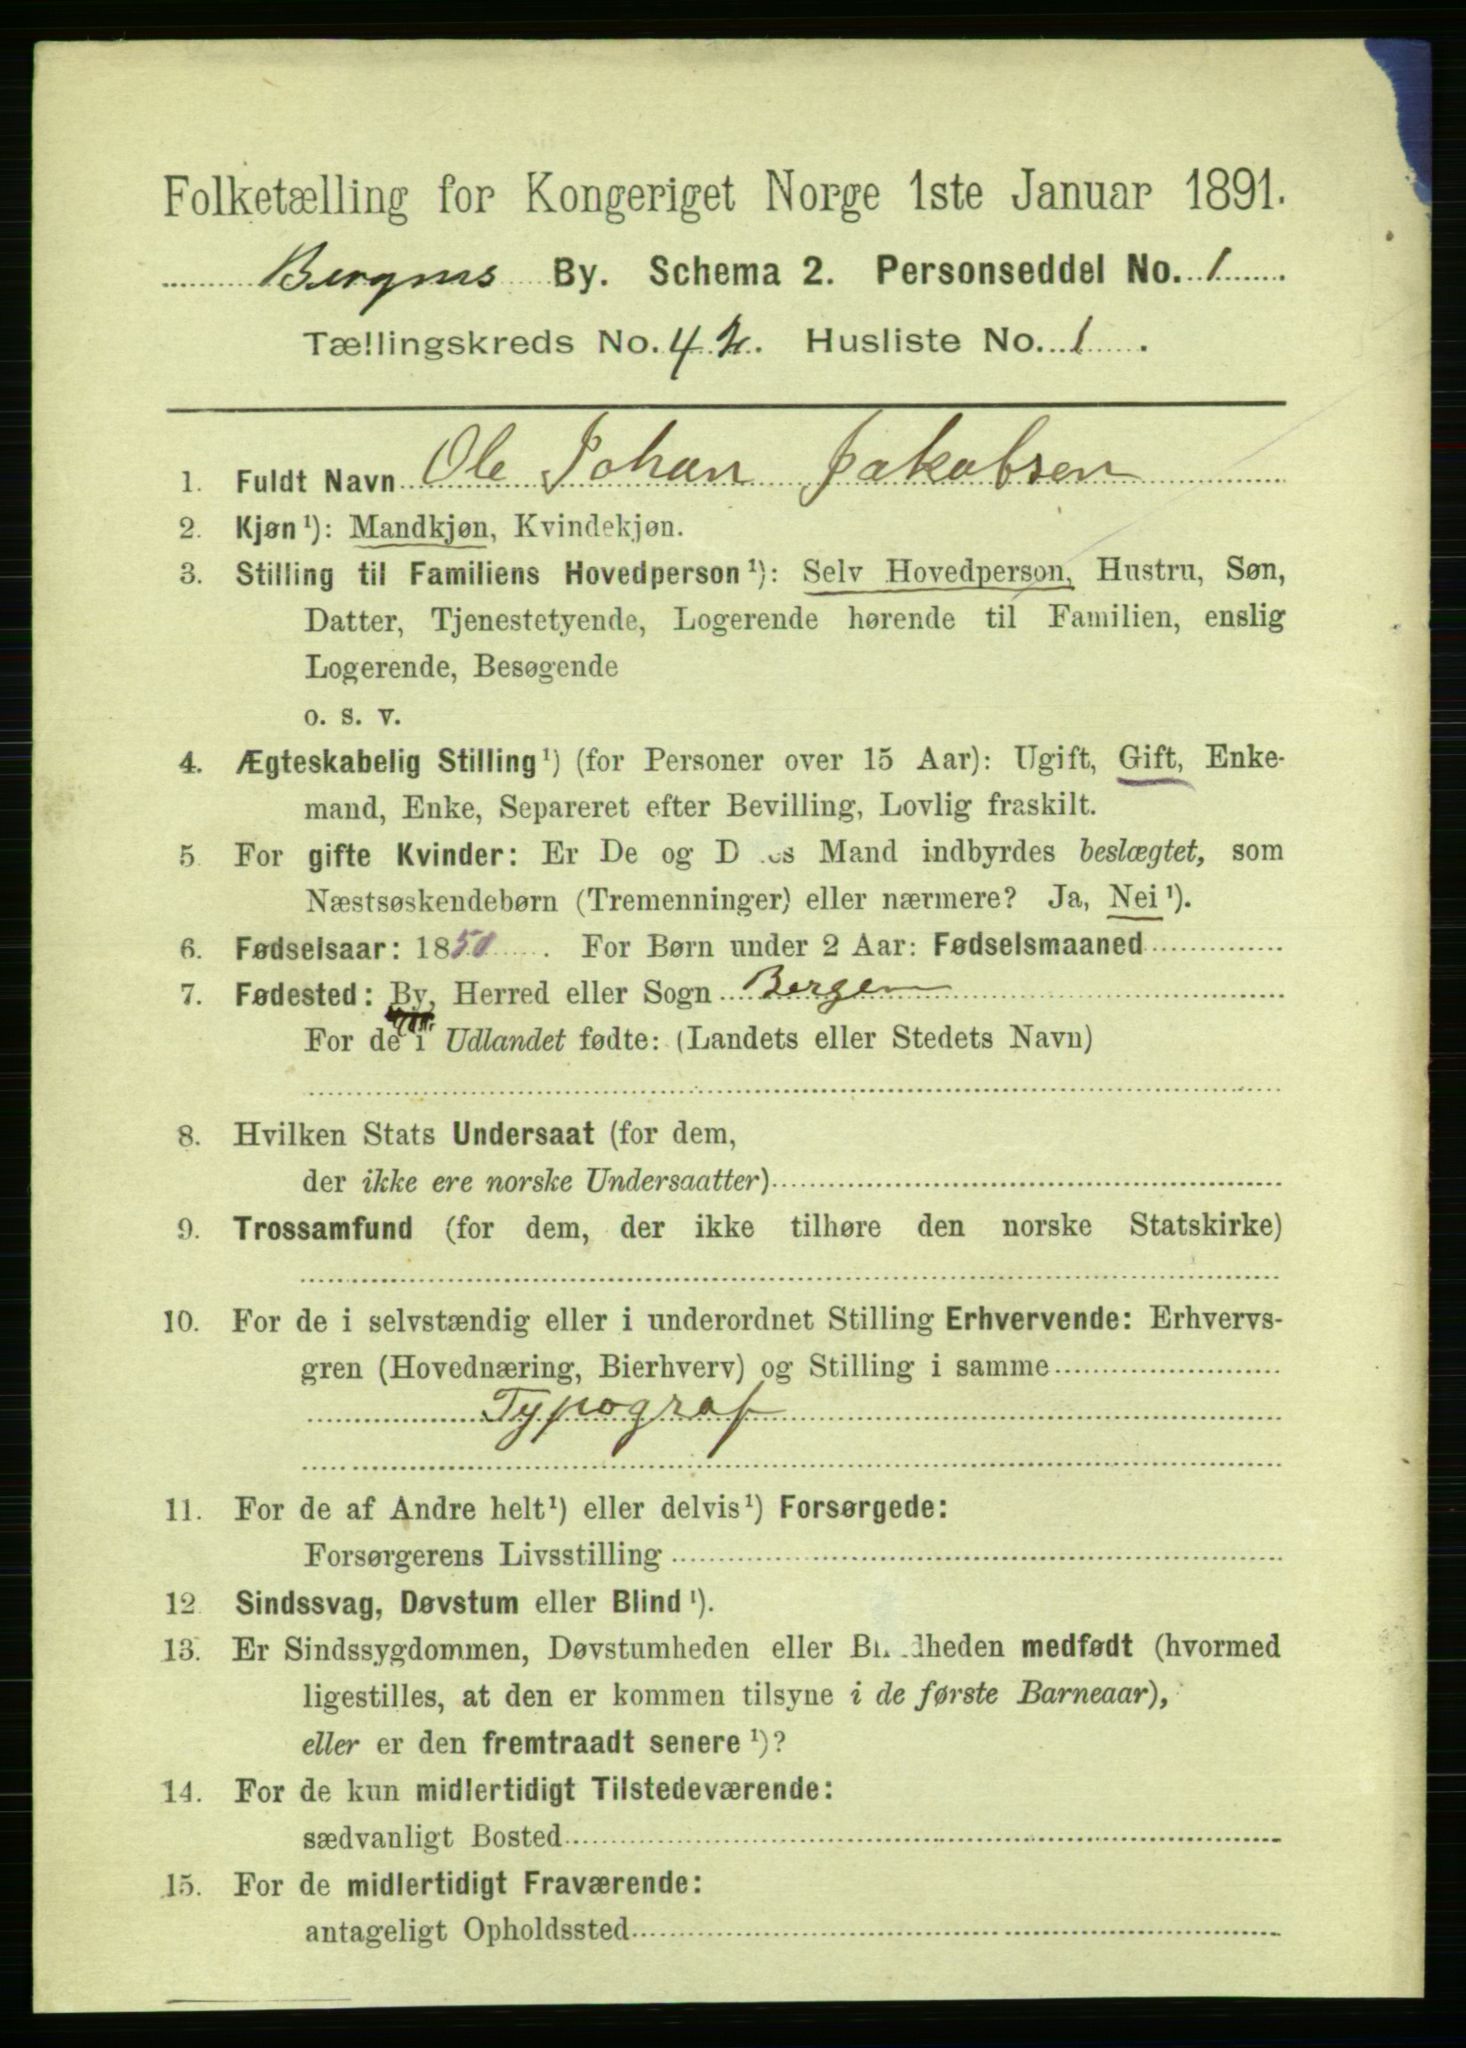 Folketælling for Kongeriget Norge 1ste Januar 1891.
Bergens By. Schema 2. Personseddel No. 1
Tællingskreds No. 42. Husliste No. 1.
1. Fuldt Navn Ole Johan Jakobsen
2. Kjøn¹): Mandkjøn, Kvindekjøn.
3. Stilling til Familiens Hovedperson¹): Selv Hovedperson, Hustru, Søn,
Datter, Tjenestetyende, Logerende hørende til Familien, enslig
Logerende, Besøgende
o. s. v.
4. Ægteskabelig Stilling¹) (for Personer over 15 Aar): Ugift, Gift, Enke-
mand, Enke, Separeret efter Bevilling, Lovlig fraskilt.
5 For gifte Kvinder: Er De og D es Mand indbyrdes beslægtet, som
Næstsøskendebørn (Tremenninger) eller nærmere? Ja, Nei¹).
6. Fødselsaar: 1850. For Børn under 2 Aar: Fødselsmaaned
7. Fødested: By, Herred eller Sogn Bergen
For de i Udlandet fødte: (Landets eller Stedets Navn)
8. Hvilken Stats Undersaat (for dem,
der ikke ere norske Undersaatter)
9. Trossamfund (for dem, der ikke tilhøre den norske Statskirke)
10. For de i selvstændig eller i underordnet Stilling Erhvervende: Erhvervs-
gren (Hovednæring, Bierhverv) og Stilling i samme
Typograf
11. For de af Andre helt¹) eller delvis¹) Forsørgede:
Forsørgerens Livsstilling
12 Sindssvag, Døvstum eller Blind¹).
13. Er Sindssygdommen, Døvstumheden eller Blindheden medfødt (hvormed
ligestilles, at den er kommen tilsyne i de første Barneaar),
eller er den fremtraadt senere¹)?
14. For de kun midlertidigt Tilstedeværende:
sædvanligt Bosted
15. For de midlertidigt Fraværende:
antageligt Opholdssted